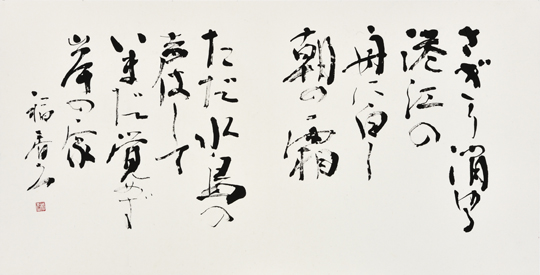 さぎり消ゆる
港江の
舟に白し
朝の霜
ただ水鳥の
声はして
いまだ覚めず
岸の家